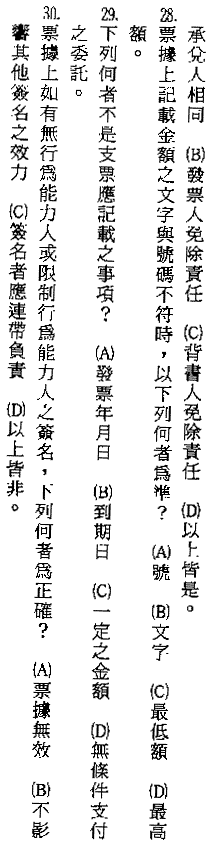 承兌人相同　(B)發票人免除責任　(C)背書人免除責任　(D)以上皆是。
28.票據上記載金額之文字與號碼不符時，以下列何者爲準？　(A)號　(B)文字　(C)最低額　(D)最高
額。
29.下列何者不是支票應記載之事項？　(A)發票年月日　(B)到期日　(C)一定之金額　(D)無條件支付
之委託。
30.票據上如有無行爲能力人或限制行爲能力人之簽名，下列何者爲正確？　(A)票據無效　(B)不影
響其他簽名之效力　(C)簽名者應連帶負責　(D)以上皆非。